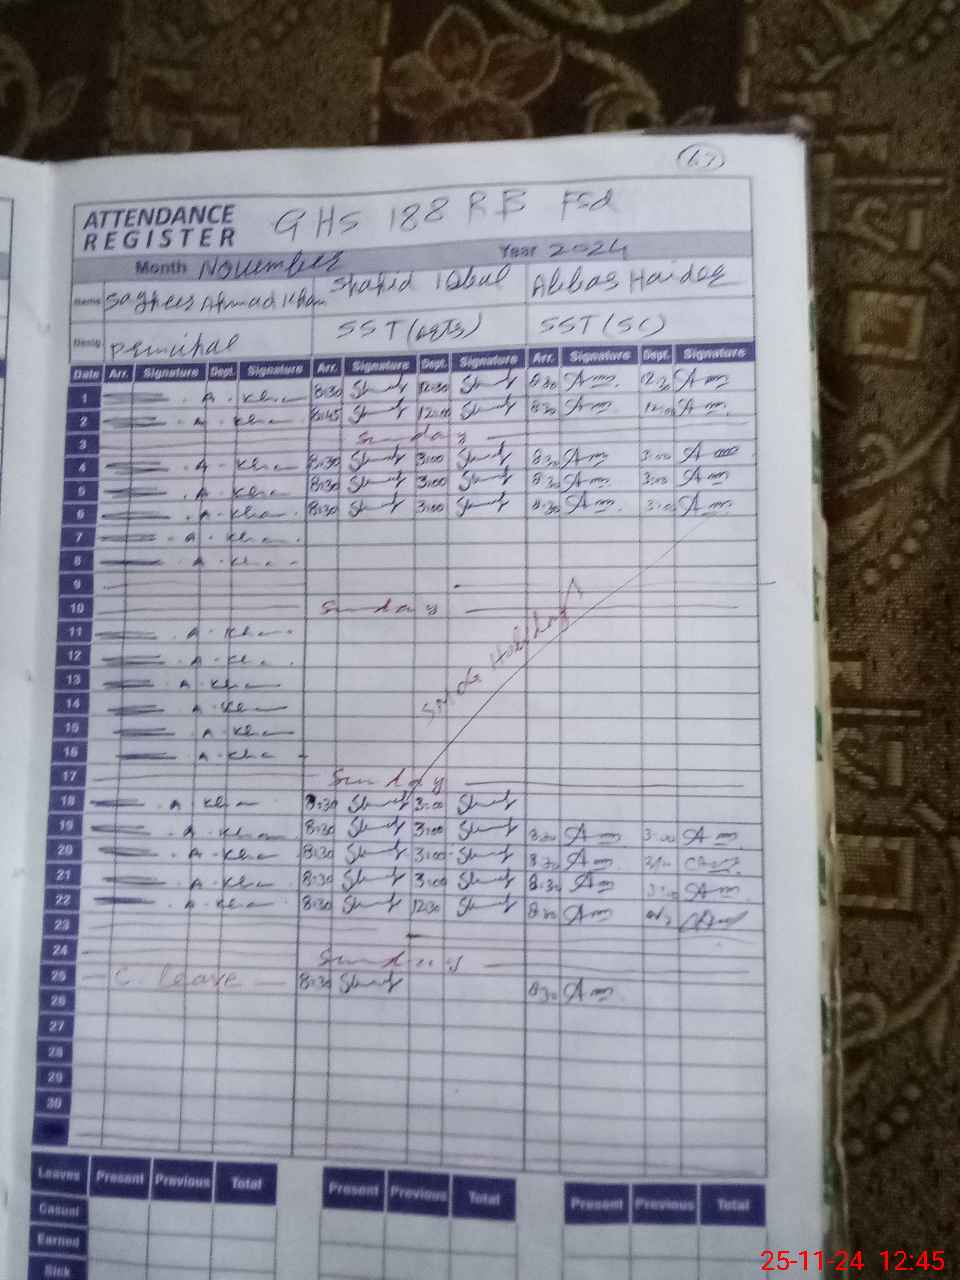 67
ATTENDANCE REGISTER GHS 188 RB Fsd
Month November Year 2024
Name Sagheer Ahmad Khan Shahid Iqbal Abbas Haider
Desig. Principal SST (arts) SST (SC)
Date Arr. Signature Dept. Signature Arr. Signature Dept. Signature Arr. Signature Dept. Signature
1 A. Khan 8:30 12:30 8:30 12:30
2 A. Khan 8:45 12:00 8:30 12:00
3 Sunday
4 A. Khan 8:30 3:00 8:30 3:00
5 A. Khan 8:30 3:00 8:30 3:00
6 A. Khan 8:30 3:00 8:30 3:00
7 A. Khan
8 A. Khan
9
10 Sunday
11 A. Khan
12 A. Khan
13 A. Khan
14 A. Khan
15 A. Khan
16 A. Khan
Smog Holidays
17 Sunday
18 A. Khan 8:30 3:00
19 A. Khan 8:30 3:00 8:30 3:00
20 A. Khan 8:30 3:00 8:30
21 A. Khan 8:30 3:00 8:30 3:00
22 A. Khan 8:30 12:30 8:30
23
24 Sunday
25 C. leave 8:30 8:30
26
27
28
29
30
Leaves Present Previous Total Present Previous Total Present Previous Total
Casual
Earned
Sick
25-11-24 12:45